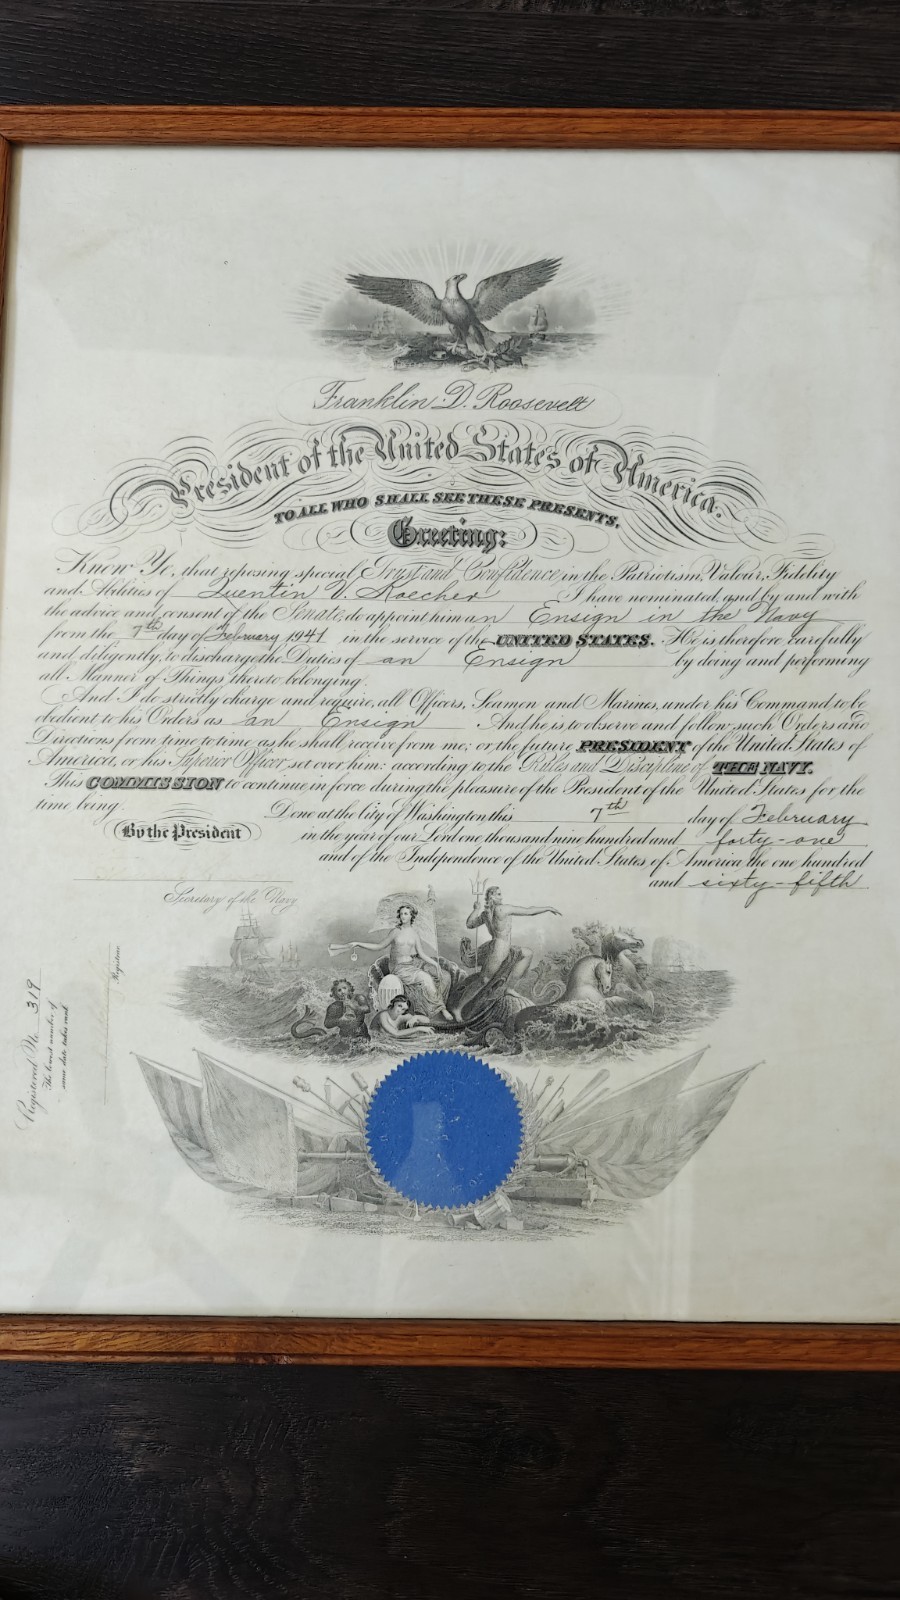 Franklin D. Roosevelt
President of the United States of America.
TO ALL WHO SHALL SEE THESE PRESENTS,
Greeting:
Know Ye, that reposing special Trust and Confidence in the Patriotism, Valour, Fidelity
and Abilities of Quentin V. I have nominated, and by and with
the advice and consent of the Senate, do appoint him an Ensign in the Navy
from the 7th day of February 1941 in the service of the UNITED STATES. He is therefore carefully
and diligently to discharge the Duties of an Ensign by doing and performing
all Manner of Things thereto belonging.
And I do strictly charge and require all Officers, Seamen and Marines, under his Command to be
obedient to his Orders as an Ensign. And he is to observe and follow such Orders and
Directions from time to time as he shall receive from me, or the future PRESIDENT of the United States of
America, or his Superior Officer, set over him: according to the Rules and Discipline of THE NAVY.
This COMMISSION to continue in force during the pleasure of the President of the United States for the
time being.
Done at the City of Washington this 7th day of February
By the President
in the year of our Lord one thousand nine hundred and forty-one
and of the Independence of the United States of America the one hundred
and sixty-fifth
Secretary of the Navy
Registered No. 319
The lowest number of
same date takes rank